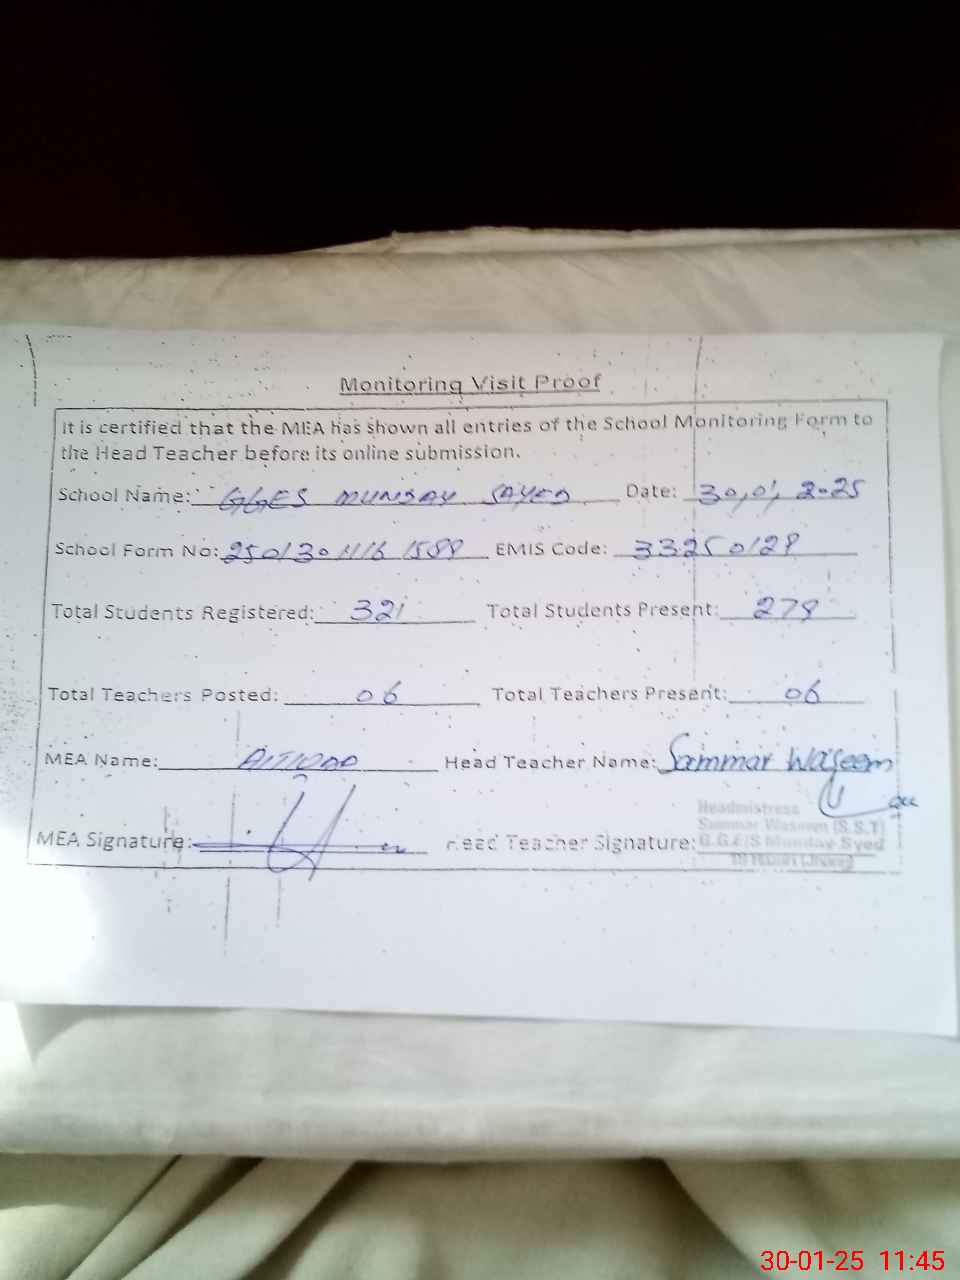 Monitoring Visit Proof
It is certified that the MEA has shown all entries of the School Monitoring Form to
the Head Teacher before its online submission.
School Name: GGES MUNDAY SAYED Date: 30,01,2025
School Form No: 25013011161588 EMIS Code: 33250128
Total Students Registered: 321 Total Students Present: 278
Total Teachers Posted: 06 Total Teachers Present: 06
MEA Name: Head Teacher Name: Sammar Waseem
Headmistress
Sammar Waseem (S.S.T)
MEA Signature: Head Teacher Signature: G.G.E/S Munday Syed
30-01-25 11:45